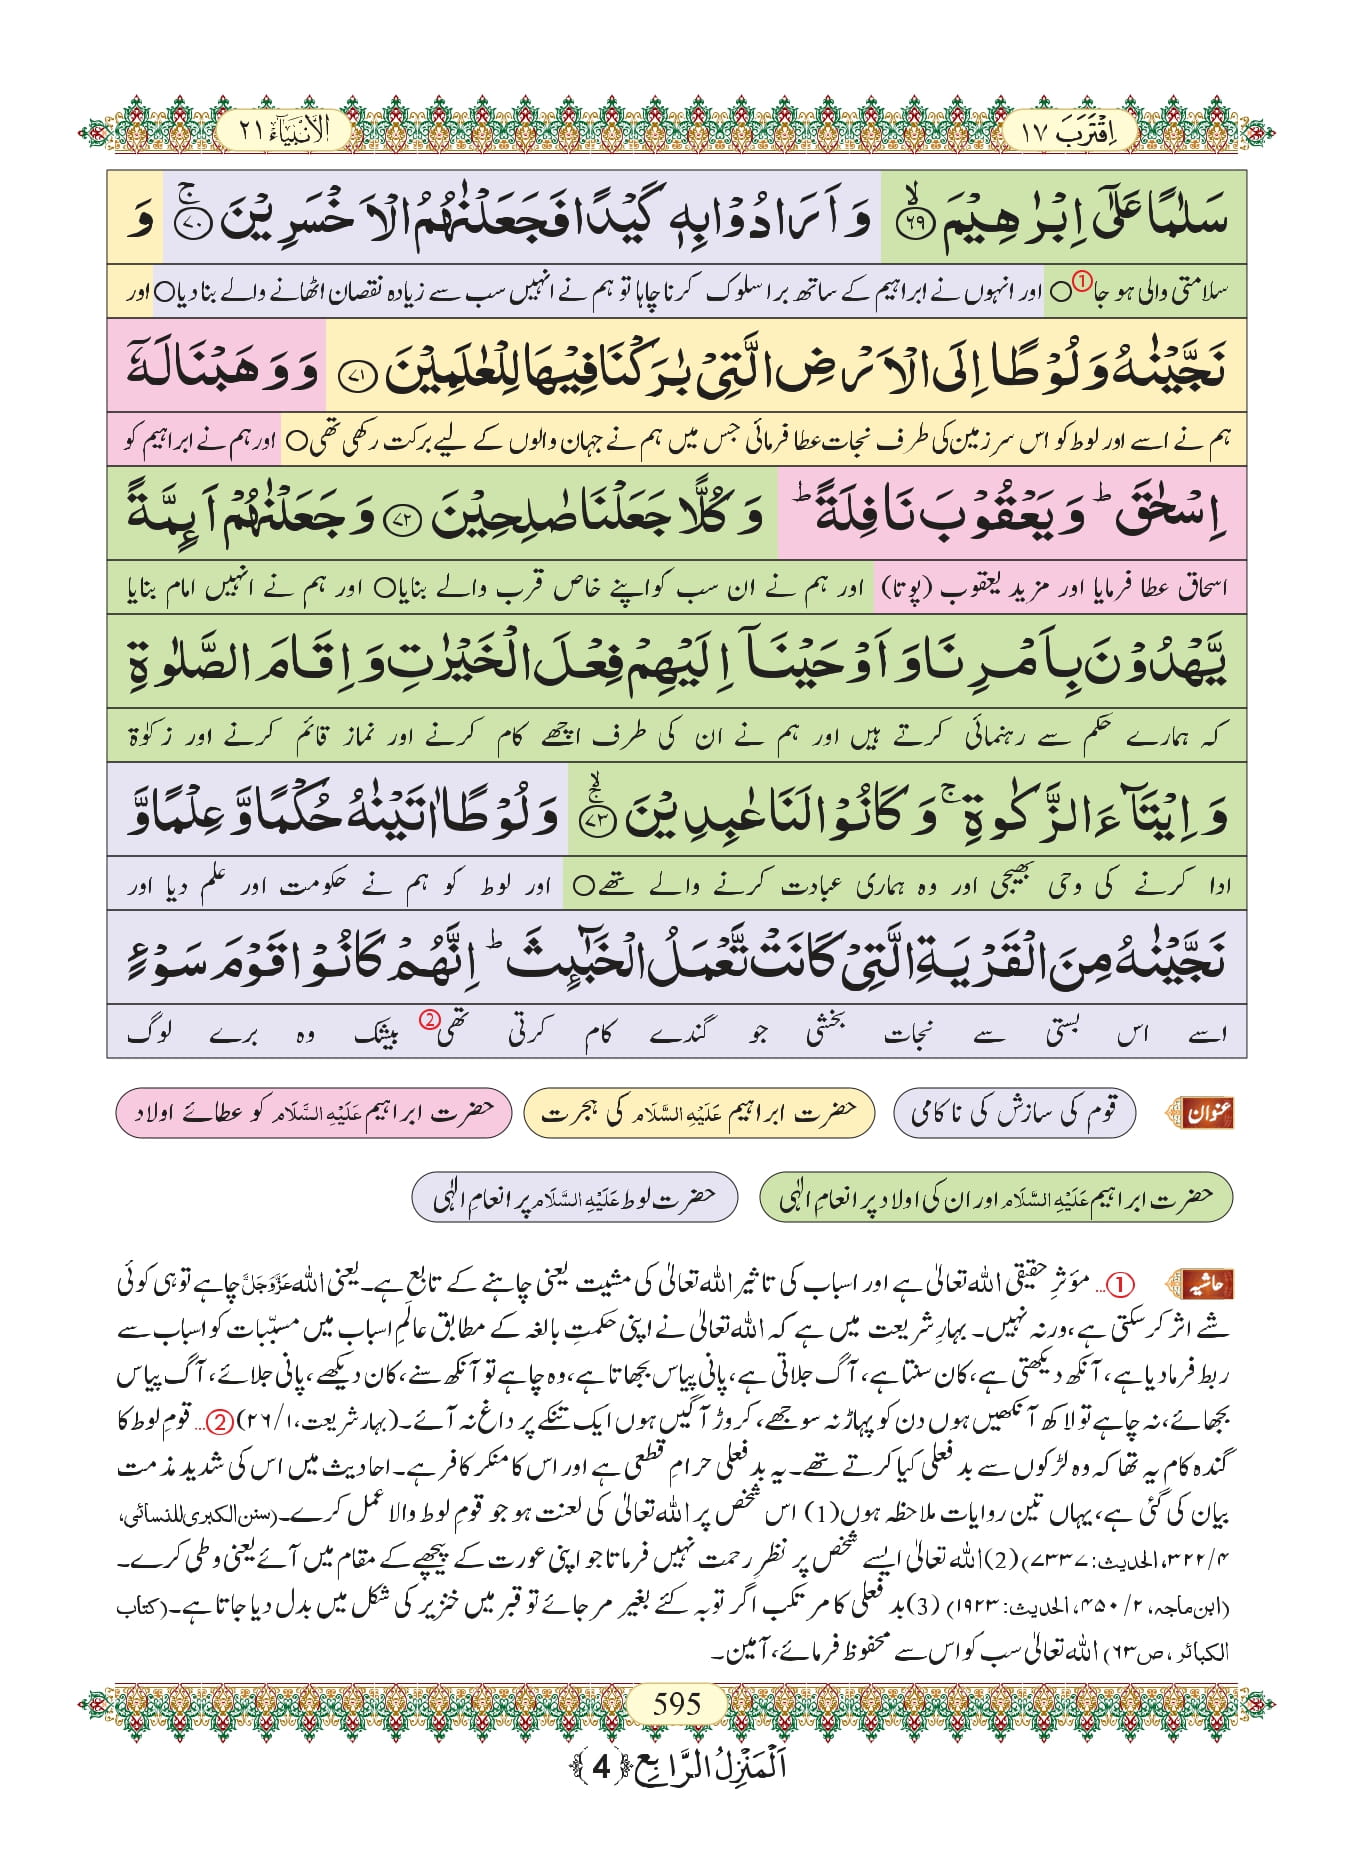 اِقْتَرَبَ ١٧
الْاَنْبِيَآء ٢١
سَلٰمًا عَلٰۤى اِبْرٰهِيْمَ ﴿ۙ۶۹﴾ وَ اَرَادُوْا بِهٖ كَيْدًا فَجَعَلْنٰهُمُ الْاَخْسَرِيْنَ ﴿ۚ۷۰﴾ وَ
سلامتی والی ہو جا① ○ اور انہوں نے ابراہیم کے ساتھ برا سلوک کرنا چاہا تو ہم نے انہیں سب سے زیادہ نقصان اٹھانے والے بنا دیا ○ اور
نَجَّيْنٰهُ وَ لُوْطًا اِلَى الْاَرْضِ الَّتِيْ بٰرَكْنَا فِيْهَا لِلْعٰلَمِيْنَ ﴿۷۱﴾ وَ وَهَبْنَا لَهٗۤ
ہم نے اسے اور لوط کو اس سرزمین کی طرف نجات عطا فرمائی جس میں ہم نے جہان والوں کے لیے برکت رکھی تھی ○ اور ہم نے ابراہیم کو
اِسْحٰقَ ؕ وَ يَعْقُوْبَ نَافِلَةً ؕ وَ كُلًّا جَعَلْنَا صٰلِحِيْنَ ﴿۷۲﴾ وَ جَعَلْنٰهُمْ اَىِٕمَّةً
اسحاق عطا فرمایا اور مزید یعقوب (پوتا) اور ہم نے ان سب کو اپنے خاص قرب والے بنایا ○ اور ہم نے انہیں امام بنایا
يَّهْدُوْنَ بِاَمْرِنَا وَ اَوْحَيْنَاۤ اِلَيْهِمْ فِعْلَ الْخَيْرٰتِ وَ اِقَامَ الصَّلٰوةِ
کہ ہمارے حکم سے رہنمائی کرتے ہیں اور ہم نے ان کی طرف اچھے کام کرنے اور نماز قائم کرنے اور زکوٰۃ
وَ اِيْتَآءَ الزَّكٰوةِ ۚ وَ كَانُوْا لَنَا عٰبِدِيْنَ ﴿ۚۙ۷۳﴾ وَ لُوْطًا اٰتَيْنٰهُ حُكْمًا وَّ عِلْمًا وَّ
ادا کرنے کی وحی بھیجی اور وہ ہماری عبادت کرنے والے تھے ○ اور لوط کو ہم نے حکومت اور علم دیا اور
نَجَّيْنٰهُ مِنَ الْقَرْيَةِ الَّتِيْ كَانَتْ تَّعْمَلُ الْخَبٰٓىِٕثَ ؕ اِنَّهُمْ كَانُوْا قَوْمَ سَوْءٍ
اسے اس بستی سے نجات بخشی جو گندے کام کرتی تھی② بیشک وہ برے لوگ
عنوان قوم کی سازش کی ناکامی حضرت ابراہیم عَلَیْہِ السَّلَام کی ہجرت حضرت ابراہیم عَلَیْہِ السَّلَام کو عطائے اولاد
حضرت ابراہیم عَلَیْہِ السَّلَام اور ان کی اولاد پر انعامِ الٰہی حضرت لوط عَلَیْہِ السَّلَام پر انعامِ الٰہی
حاشیہ ①... مؤثرِ حقیقی اللہ تعالیٰ ہے اور اسباب کی تاثیر اللہ تعالیٰ کی مشیت یعنی چاہنے کے تابع ہے۔ یعنی اللہ عَزَّوَجَلَّ چاہے تو ہی کوئی
شے اثر کر سکتی ہے، ورنہ نہیں۔ بہارِ شریعت میں ہے کہ اللہ تعالیٰ نے اپنی حکمتِ بالغہ کے مطابق عالَمِ اسباب میں مسبّبات کو اسباب سے
ربط فرما دیا ہے، آنکھ دیکھتی ہے، کان سنتا ہے، آگ جلاتی ہے، پانی پیاس بجھاتا ہے، وہ چاہے تو آنکھ سنے، کان دیکھے، پانی جلائے، آگ پیاس
بجھائے، نہ چاہے تو لاکھ آنکھیں ہوں دن کو پہاڑ نہ سوجھے، کروڑ آگیں ہوں ایک تنکے پر داغ نہ آئے۔ (بہار شریعت، ۱/۲۶) ②... قومِ لوط کا
گندہ کام یہ تھا کہ وہ لڑکوں سے بد فعلی کیا کرتے تھے۔ یہ بد فعلی حرامِ قطعی ہے اور اس کا منکر کافر ہے۔ احادیث میں اس کی شدید مذمت
بیان کی گئی ہے، یہاں تین روایات ملاحظہ ہوں (1) اس شخص پر اللہ تعالیٰ کی لعنت ہو جو قومِ لوط والا عمل کرے۔ (سنن الکبری للنسائی،
۴/۳۲۲، الحدیث: ۷۳۳۷) (2) اللہ تعالیٰ ایسے شخص پر نظرِ رحمت نہیں فرماتا جو اپنی عورت کے پیچھے کے مقام میں آئے یعنی وطی کرے۔
(ابن ماجہ، ۲/ ۴۵۰، الحدیث: ۱۹۲۳) (3) بد فعلی کا مرتکب اگر توبہ کئے بغیر مر جائے تو قبر میں خنزیر کی شکل میں بدل دیا جاتا ہے۔ (کتاب
الکبائر، ص۶۳) اللہ تعالیٰ سب کو اس سے محفوظ فرمائے، آمین۔
595
اَلْمَنْزِلُ الرَّابِع ﴿4﴾